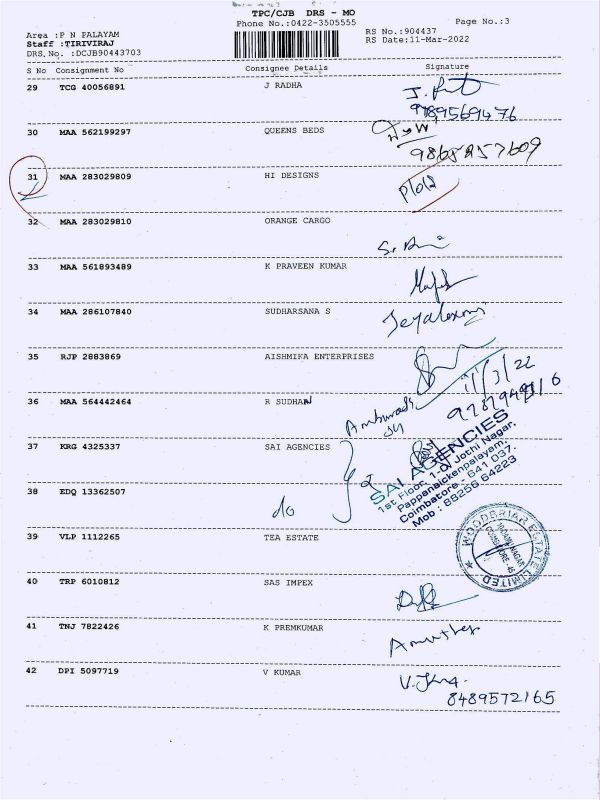 TPC/CJB DRS - MO
Phone No.:0422-3505555
Page No.:3
Area :P N PALAYAM
Staff :TIRIVIRAJ
DRS. No. :DCJB90443703
RS No.:904437
RS Date:11-Mar-2022
S No Consignment No Consignee Details Signature
29 TCG 40056891 J RADHA
9789569476
30 MAA 562199297 QUEENS BEDS
9865257609
31 MAA 283029809 HI DESIGNS
32 MAA 283029810 ORANGE CARGO
33 MAA 561893489 K PRAVEEN KUMAR
34 MAA 286107840 SUDHARSANA S
Jeyalaxmi
35 RJP 2883869 AISHMIKA ENTERPRISES
11/3/22
36 MAA 564442464 R SUDHAN
37 KRG 4325337 SAI AGENCIES
SAI AGENCIES
1st Floor, 1-D, Jothi Nagar,
Pappanaickenpalayam,
Coimbatore - 641 037.
Mob : 88256 64223
38 EDQ 13362507
do
39 VLP 1112265 TEA ESTATE
WOODBRIAR ESTATE LIMITED
40 TRP 6010812 SAS IMPEX
41 TNJ 7822426 K PREMKUMAR
42 DPI 5097719 V KUMAR
8489572165